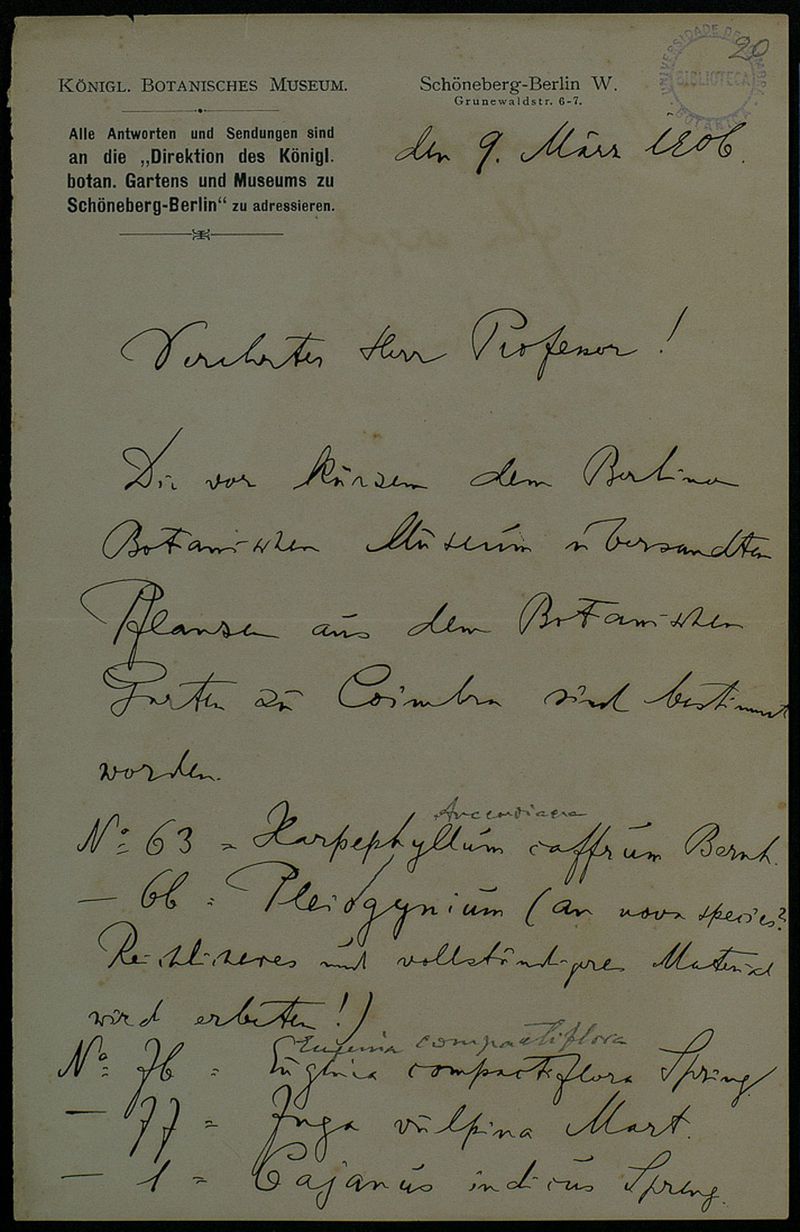 20
UNIVERSIDADE DE COIMBRA
BIBLIOTECA
BOTANICA
KÖNIGL. BOTANISCHES MUSEUM.
Alle Antworten und Sendungen sind
an die „Direktion des Königl.
botan. Gartens und Museums zu
Schöneberg-Berlin“ zu adressieren.
Schöneberg-Berlin W.
Grunewaldstr. 6-7.
den 9. März 1906.
Verehrter Herr Professor!
Die vor kurzem dem Berliner
Botanischen Museum übersandten
Pflanzen aus dem Botanischen
Garten zu Coimbra sind bestimmt
worden.
No 63 = Harpephyllum caffrum Bernh.
— 66 = Pleiogynium (an nova species?
Reichlicheres und vollständigeres Material
wird erbeten!)
Eugenia compactiflora
No 76 = Eugenia compactiflora Spring
— 77 = Inga vulpina Mart.
— 1 = Cajanus indicus Spreng.